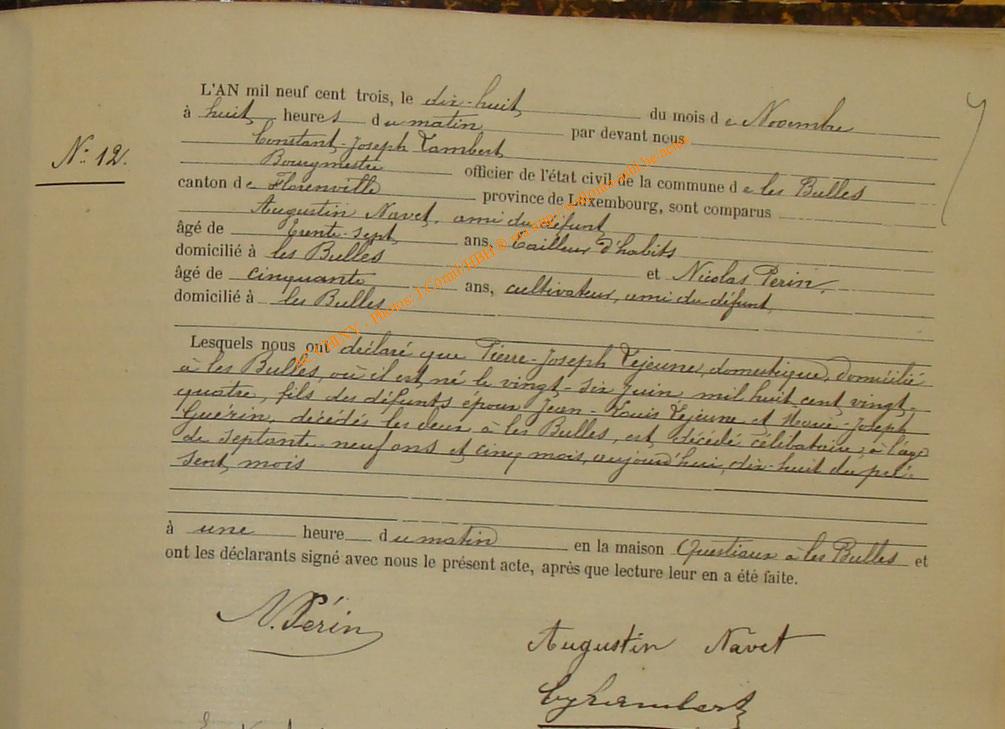 L'AN mil neuf cent trois, le dix-huit du mois de Novembre
à huit heures du matin par devant nous
Constant-Joseph Lambert
Nº 12.
Bourgmestre officier de l'état civil de la commune de les Bulles
canton de Florenville province de Luxembourg, sont comparus
Augustin Navet, ami du défunt
âgé de trente-sept ans, tailleur d'habits
domicilié à les Bulles et Nicolas Perin,
âgé de cinquante ans, cultivateur, ami du défunt,
domicilié à les Bulles
Lesquels nous ont déclaré que Pierre-Joseph Lejeune, domestique, domicilié
à les Bulles, où il est né le vingt-six Juin, mil huit cent vingt-
quatre, fils des défunts époux Jean-Louis Lejeune et Joseph
Guérin, décédés les deux à les Bulles, est décédé célibataire, à l'âge
de septante-neuf ans et cinq mois, aujourd'hui, dix-huit du pré-
sent mois
à une heure du matin en la maison Questiaux à les Bulles et
ont les déclarants signé avec nous le présent acte, après que lecture leur en a été faite.
N. Périn
Augustin Navet
Lambert